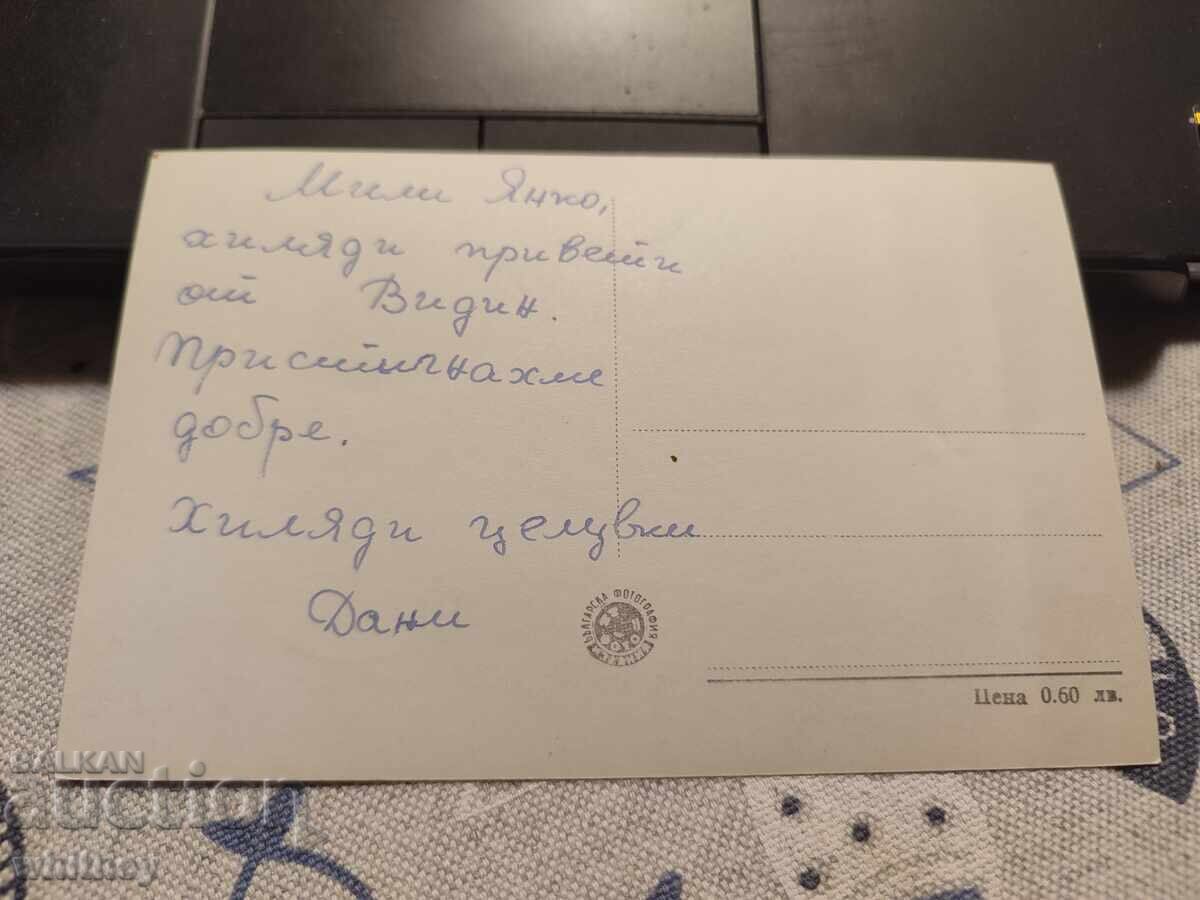 Мили Янко,
хиляди привети
от Видин.
Пристигнахме
добре.
Хиляди целувки
Дани
БЪЛГАРСКА ФОТОГРАФИЯ
Цена 0.60 лв.
BALKAN
auction
whitney